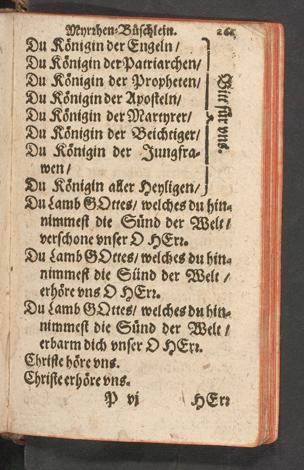 Myrrhen-Büschlein.
Du Königin der Engeln/
Du Königin der Patriarchen/
Du Königin der Propheten/
Du Königin der Aposteln/
Du Königin der Martyrer/
Du Königin der Beichtiger/
Du Königin der Jungfra-
wen/
Du Königin aller Heyligen/
Bitt für vns.
Du Lamb GOttes/ welches du hin-
nimmest die Sünd der Welt/
verschone vnser O HErr.
Du Lamb GOttes/ welches du hin-
nimmest die Sünd der Welt/
erhöre vns O HErr.
Du Lamb GOttes/ welches du hin-
nimmest die Sünd der Welt/
erbarm dich vnser O HErr.
Christe höre vns.
Christe erhöre vns.
P vj HErr